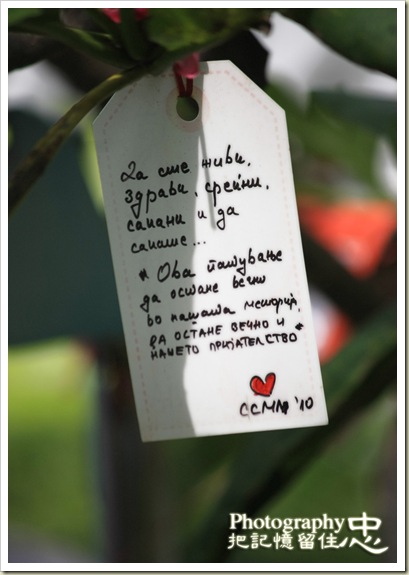 Да сте живи,
здрави, среќни,
сакани и да
сакате...
* Ова патување
да остане вечно
во нашата меморија,
ДА ОСТАНЕ ВЕЧНО И
НАШЕТО ПРИЈАТЕЛСТВО *
'10
Photography 忠
把記憶留住